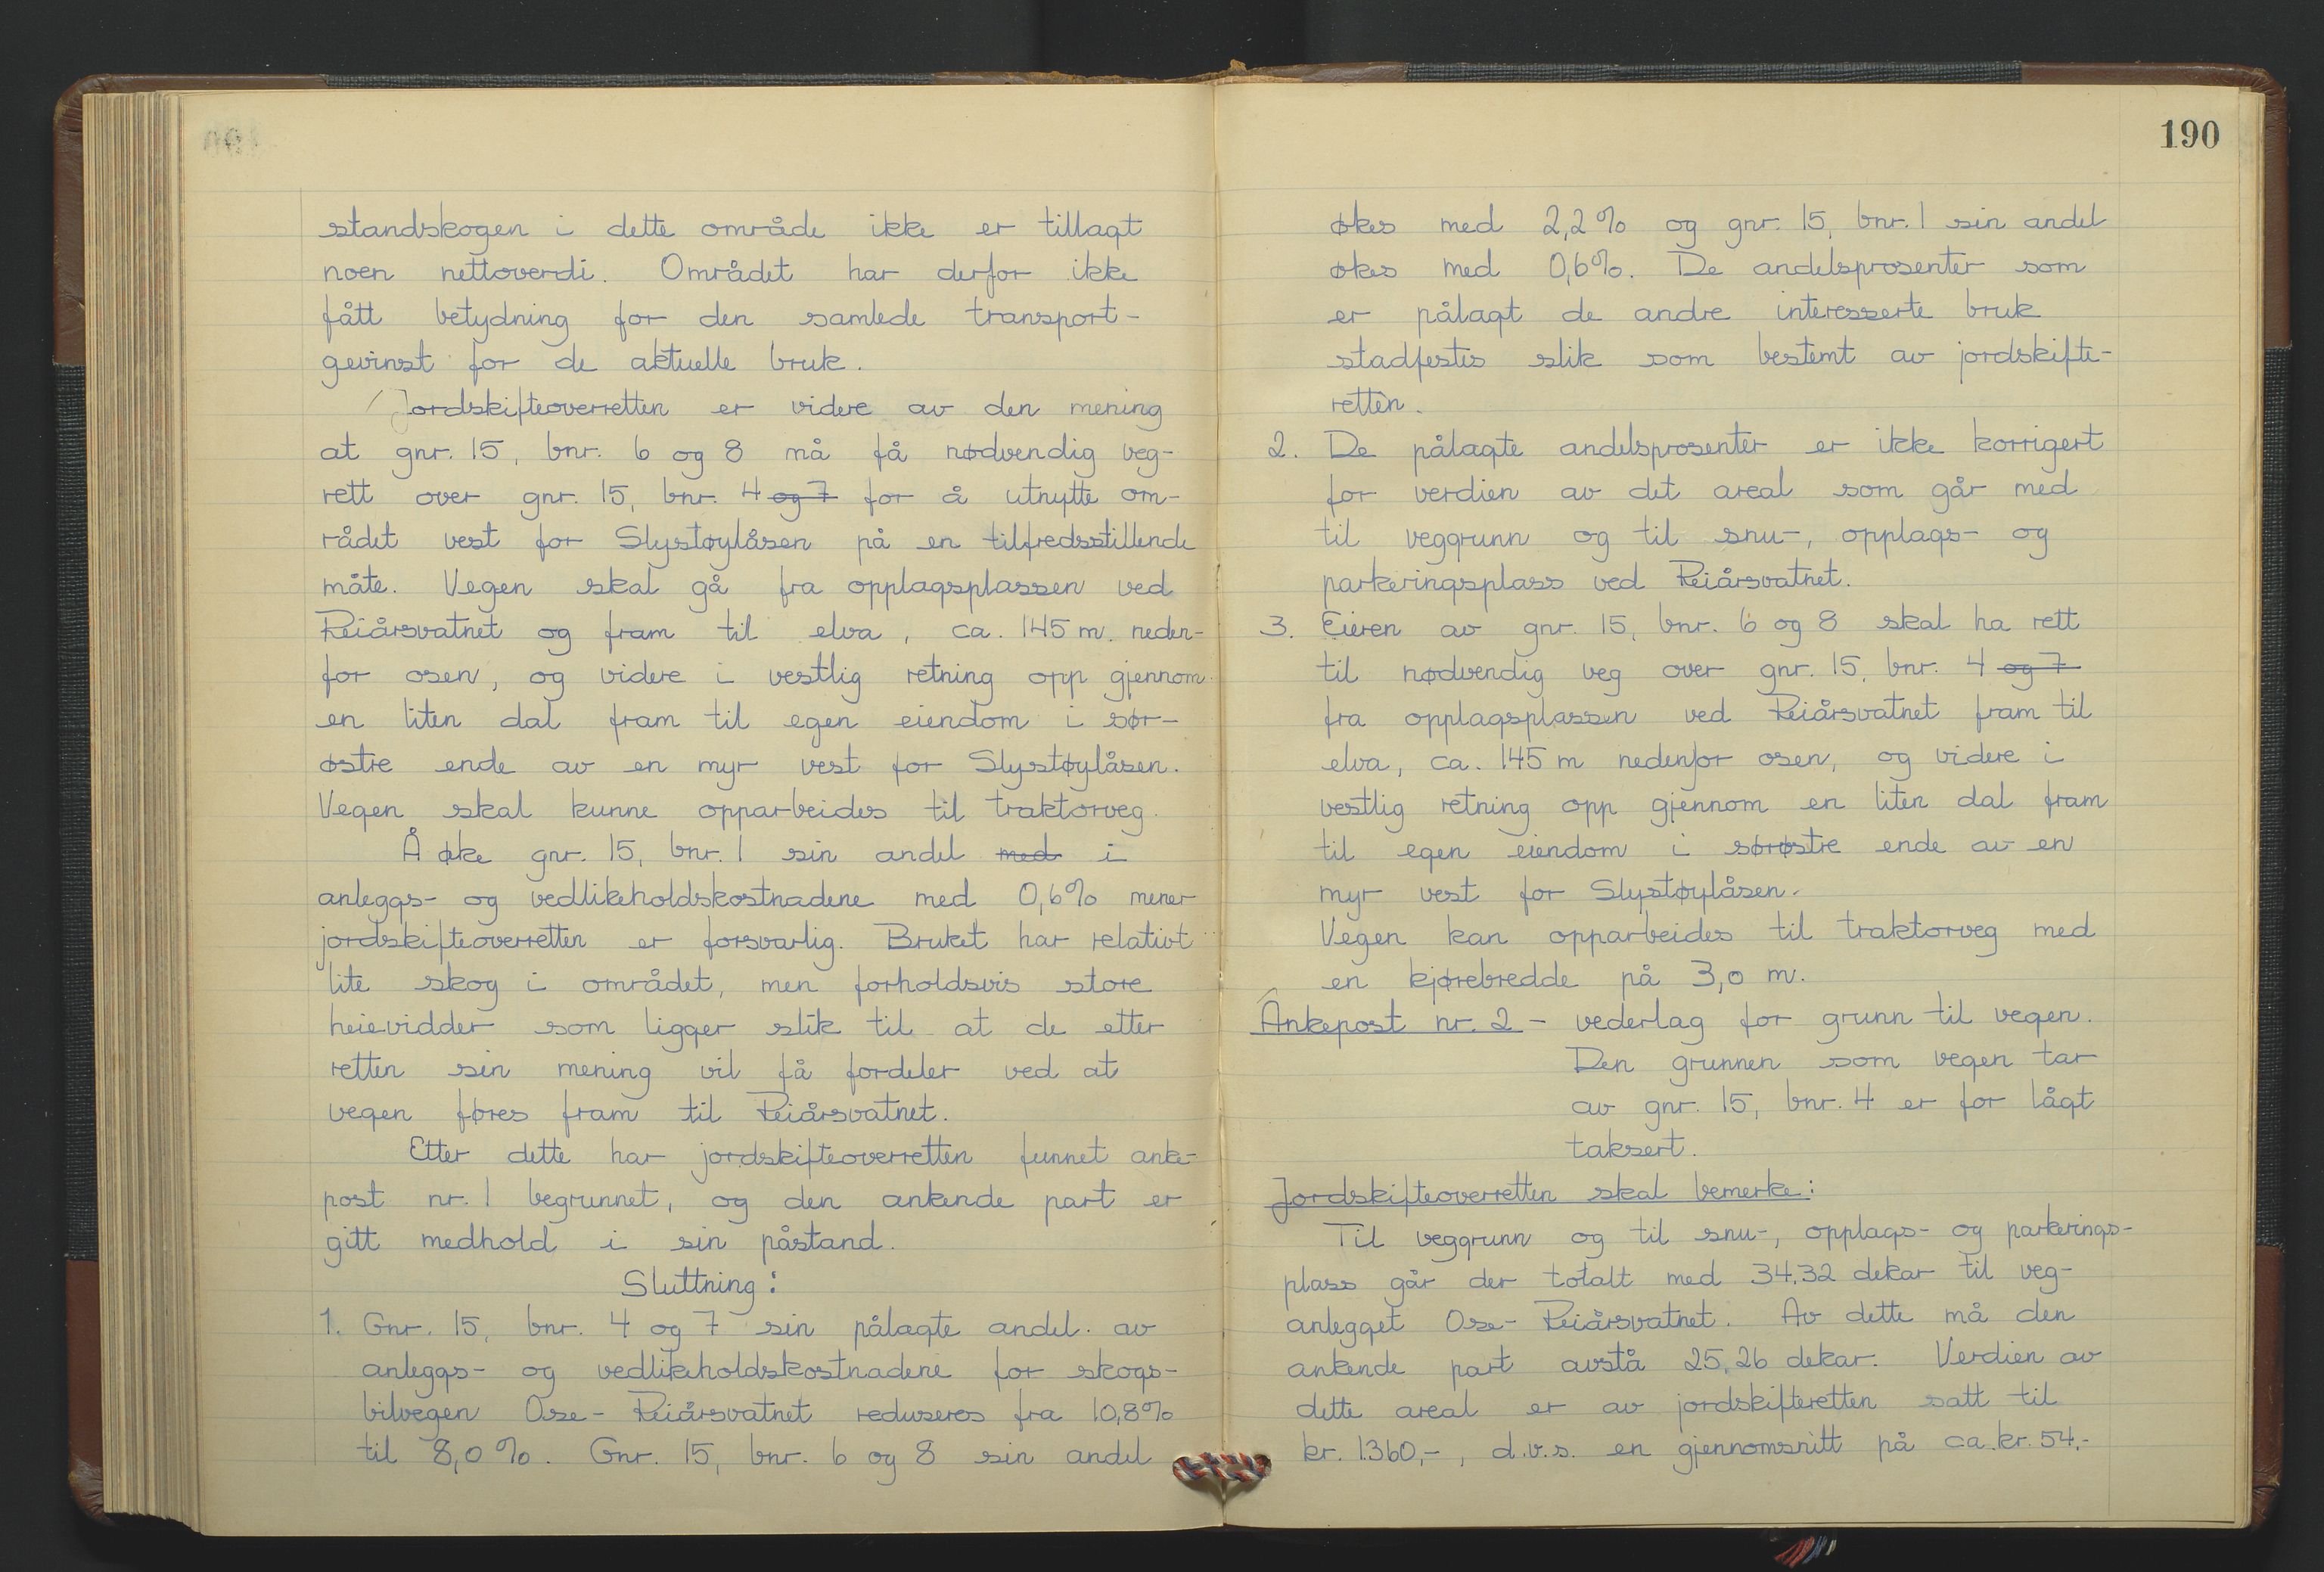 standskogen i dette område ikke er tillagt
noen nettoverdi. Området har derfor ikke
fått betydning for den samlede transport-
gevinst for de aktuelle bruk.
Jordskifteoverretten er videre av den mening
at gnr. 15, bnr. 6 og 8 må få nødvendig veg-
rett over gnr. 15, bnr. 4 og 7 for å utnytte om-
rådet vest for Slystøylåsen på en tilfredsstillende
måte. Vegen skal gå fra opplagsplassen ved
Reiårsvatnet og fram til elva, ca. 145 m. neden-
for osen, og videre i vestlig retning opp gjennom
en liten dal fram til egen eiendom i sør-
østre ende av en myr vest for Slystøylåsen.
Vegen skal kunne opparbeides til traktorveg.
Å øke gnr. 15, bnr. 1 sin andel med i
anleggs- og vedlikeholdskostnadene med 0,6% mener
jordskifteoverretten er forsvarlig. Bruket har relativt
lite skog i området, men forholdsvis store
heievidder som ligger slik til at de etter
retten sin mening vil få fordeler ved at
vegen føres fram til Reiårsvatnet.
Etter dette har jordskifteoverretten funnet anke-
post nr. 1 begrunnet, og den ankende part er
gitt medhold i sin påstand.
Sluttning:
1. Gnr. 15, bnr. 4 og 7 sin pålagte andel av
anleggs- og vedlikeholdskostnadene for skogs-
bilvegen Ose- Reiårsvatnet reduseres fra 10,8%
til 8,0%. Gnr. 15, bnr. 6 og 8 sin andel
190
økes med 2,2% og gnr. 15, bnr. 1 sin andel
økes med 0,6%. De andelsprosenter som
er pålagt de andre interesserte bruk
stadfestes slik som bestemt av jordskifte-
retten.
2. De pålagte andelsprosenter er ikke korrigert
for verdien av det areal som går med
til veggrunn og til snu-, opplags- og
parkeringsplass ved Reiårsvatnet.
3. Eieren av gnr. 15, bnr. 6 og 8 skal ha rett
til nødvendig veg over gnr. 15, bnr. 4 og 7
fra opplagsplassen ved Reiårsvatnet fram til
elva, ca. 145 m nedenfor osen, og videre i
vestlig retning opp gjennom en liten dal fram
til egen eiendom i sørøstre ende av en
myr vest for Slystøylåsen.
Vegen kan opparbeides til traktorveg med
en kjørebredde på 3,0 m.
Ankepost nr. 2 - vederlag for grunn til vegen.
Den grunnen som vegen tar
av gnr. 15, bnr. 4 er for lågt
taksert.
Jordskifteoverretten skal bemerke:
Til veggrunn og til snu-, opplags- og parkerings-
plass går der totalt med 34,32 dekar til veg-
anlegget Ose- Reiårsvatnet. Av dette må den
ankende part avstå 25,26 dekar. Verdien av
dette areal er av jordskifteretten satt til
kr. 1.360,-, d.v.s. en gjennomsnitt på ca. kr. 54,-